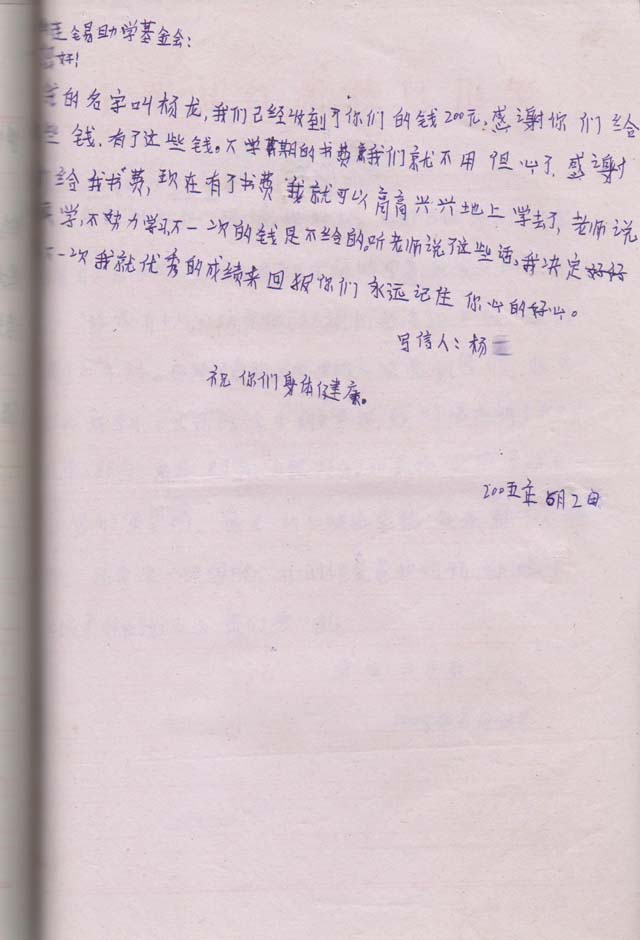 廷锡助学基金会:
您好!
我的名字叫杨龙,我们已经收到了你们的钱200元,感谢你们给
些钱.有了这些钱。下学期的书费我们就不用但心了.感谢
给我书费,现在有了书费我就可以高高兴兴地上学去了,老师说
学,不努力学习,下一次的钱是不给的,听老师说了这些话,我决定好好
下一次我就优秀的成绩来回报你们永远记住你心的好心。
写信人:杨
祝你们身体健康。
200五年5月2日